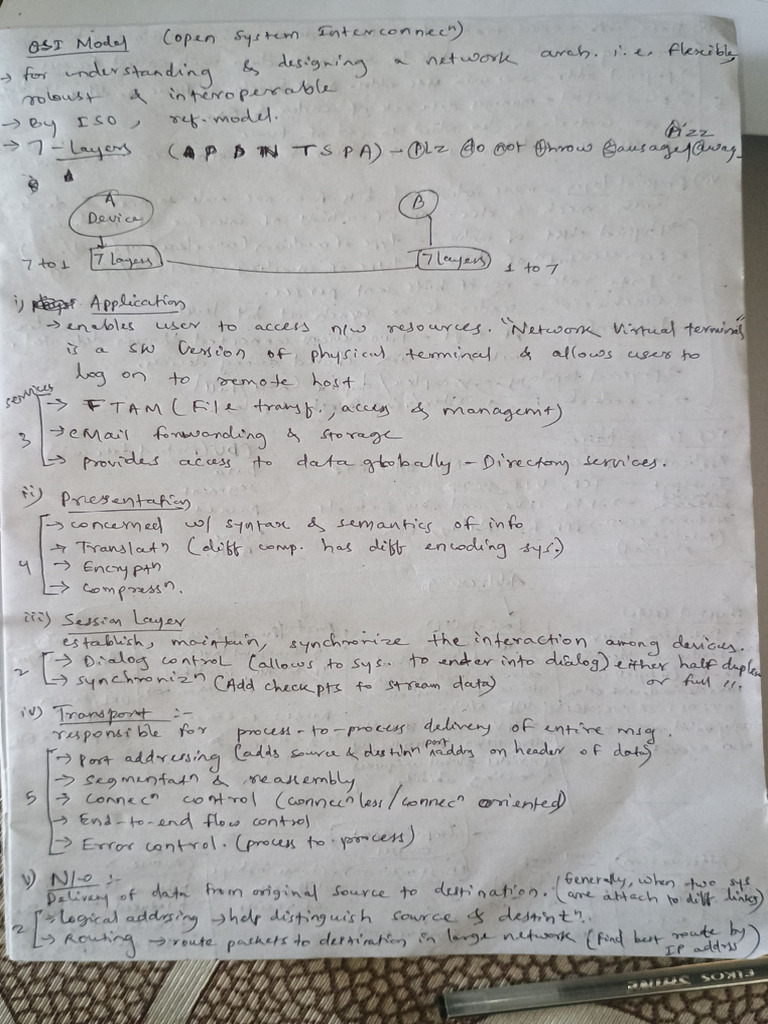 OSI Model (Open System Interconnecⁿ)
→ for understanding & designing a network arch. i.e. flexible,
robust & interoperable
→ By ISO, ref. model.
Pizz
→ 7-Layers (A P D N T S P A) - Plz do not throw sausage away
A Device
B
7 to 1 7 Layers
7 Layers 1 to 7
i) Application
→ enables user to access n/w resources. "Network Virtual terminal"
is a SW version of physical terminal & allows user to
log on to remote host.
services
→ FTAM (File transf., access & managemt)
3 → eMail forwarding & storage
→ provides access to data globally - Directory services.
ii) Presentation
→ concerned w/ syntax & semantics of info
→ Translatⁿ (diff comp. has diff encoding sys.)
4 → Encryptⁿ
→ Compressⁿ.
iii) Session Layer
establish, maintain, synchronize the interaction among devices.
2 → Dialog control (allows to sys. to enter into dialog) either half duplex
→ synchronizⁿ (Add checkpts to stream data) or full ".
iv) Transport :-
responsible for process-to-process delivery of entire msg.
→ Port addressing (adds source & destinⁿ port addrs on header of data)
→ Segmentatⁿ & reassembly
5 → Connecⁿ control (connecⁿless/connecⁿ oriented)
→ End-to-end flow control
→ Error control. (process to process)
v) N/w :-
Delivery of data from original source to destination. (Generally, when two sys
are attach to diff links)
2 → logical addrsing → help distinguish source & destintⁿ.
→ Routing → route packets to destination in large network (Find best route by
IP addrss)